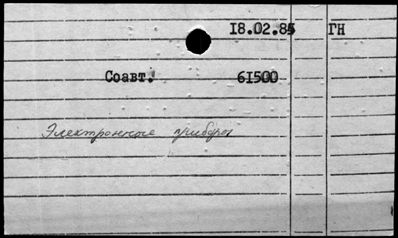 18.02.85 ГН
Соавт. 61500
Электронные приборы